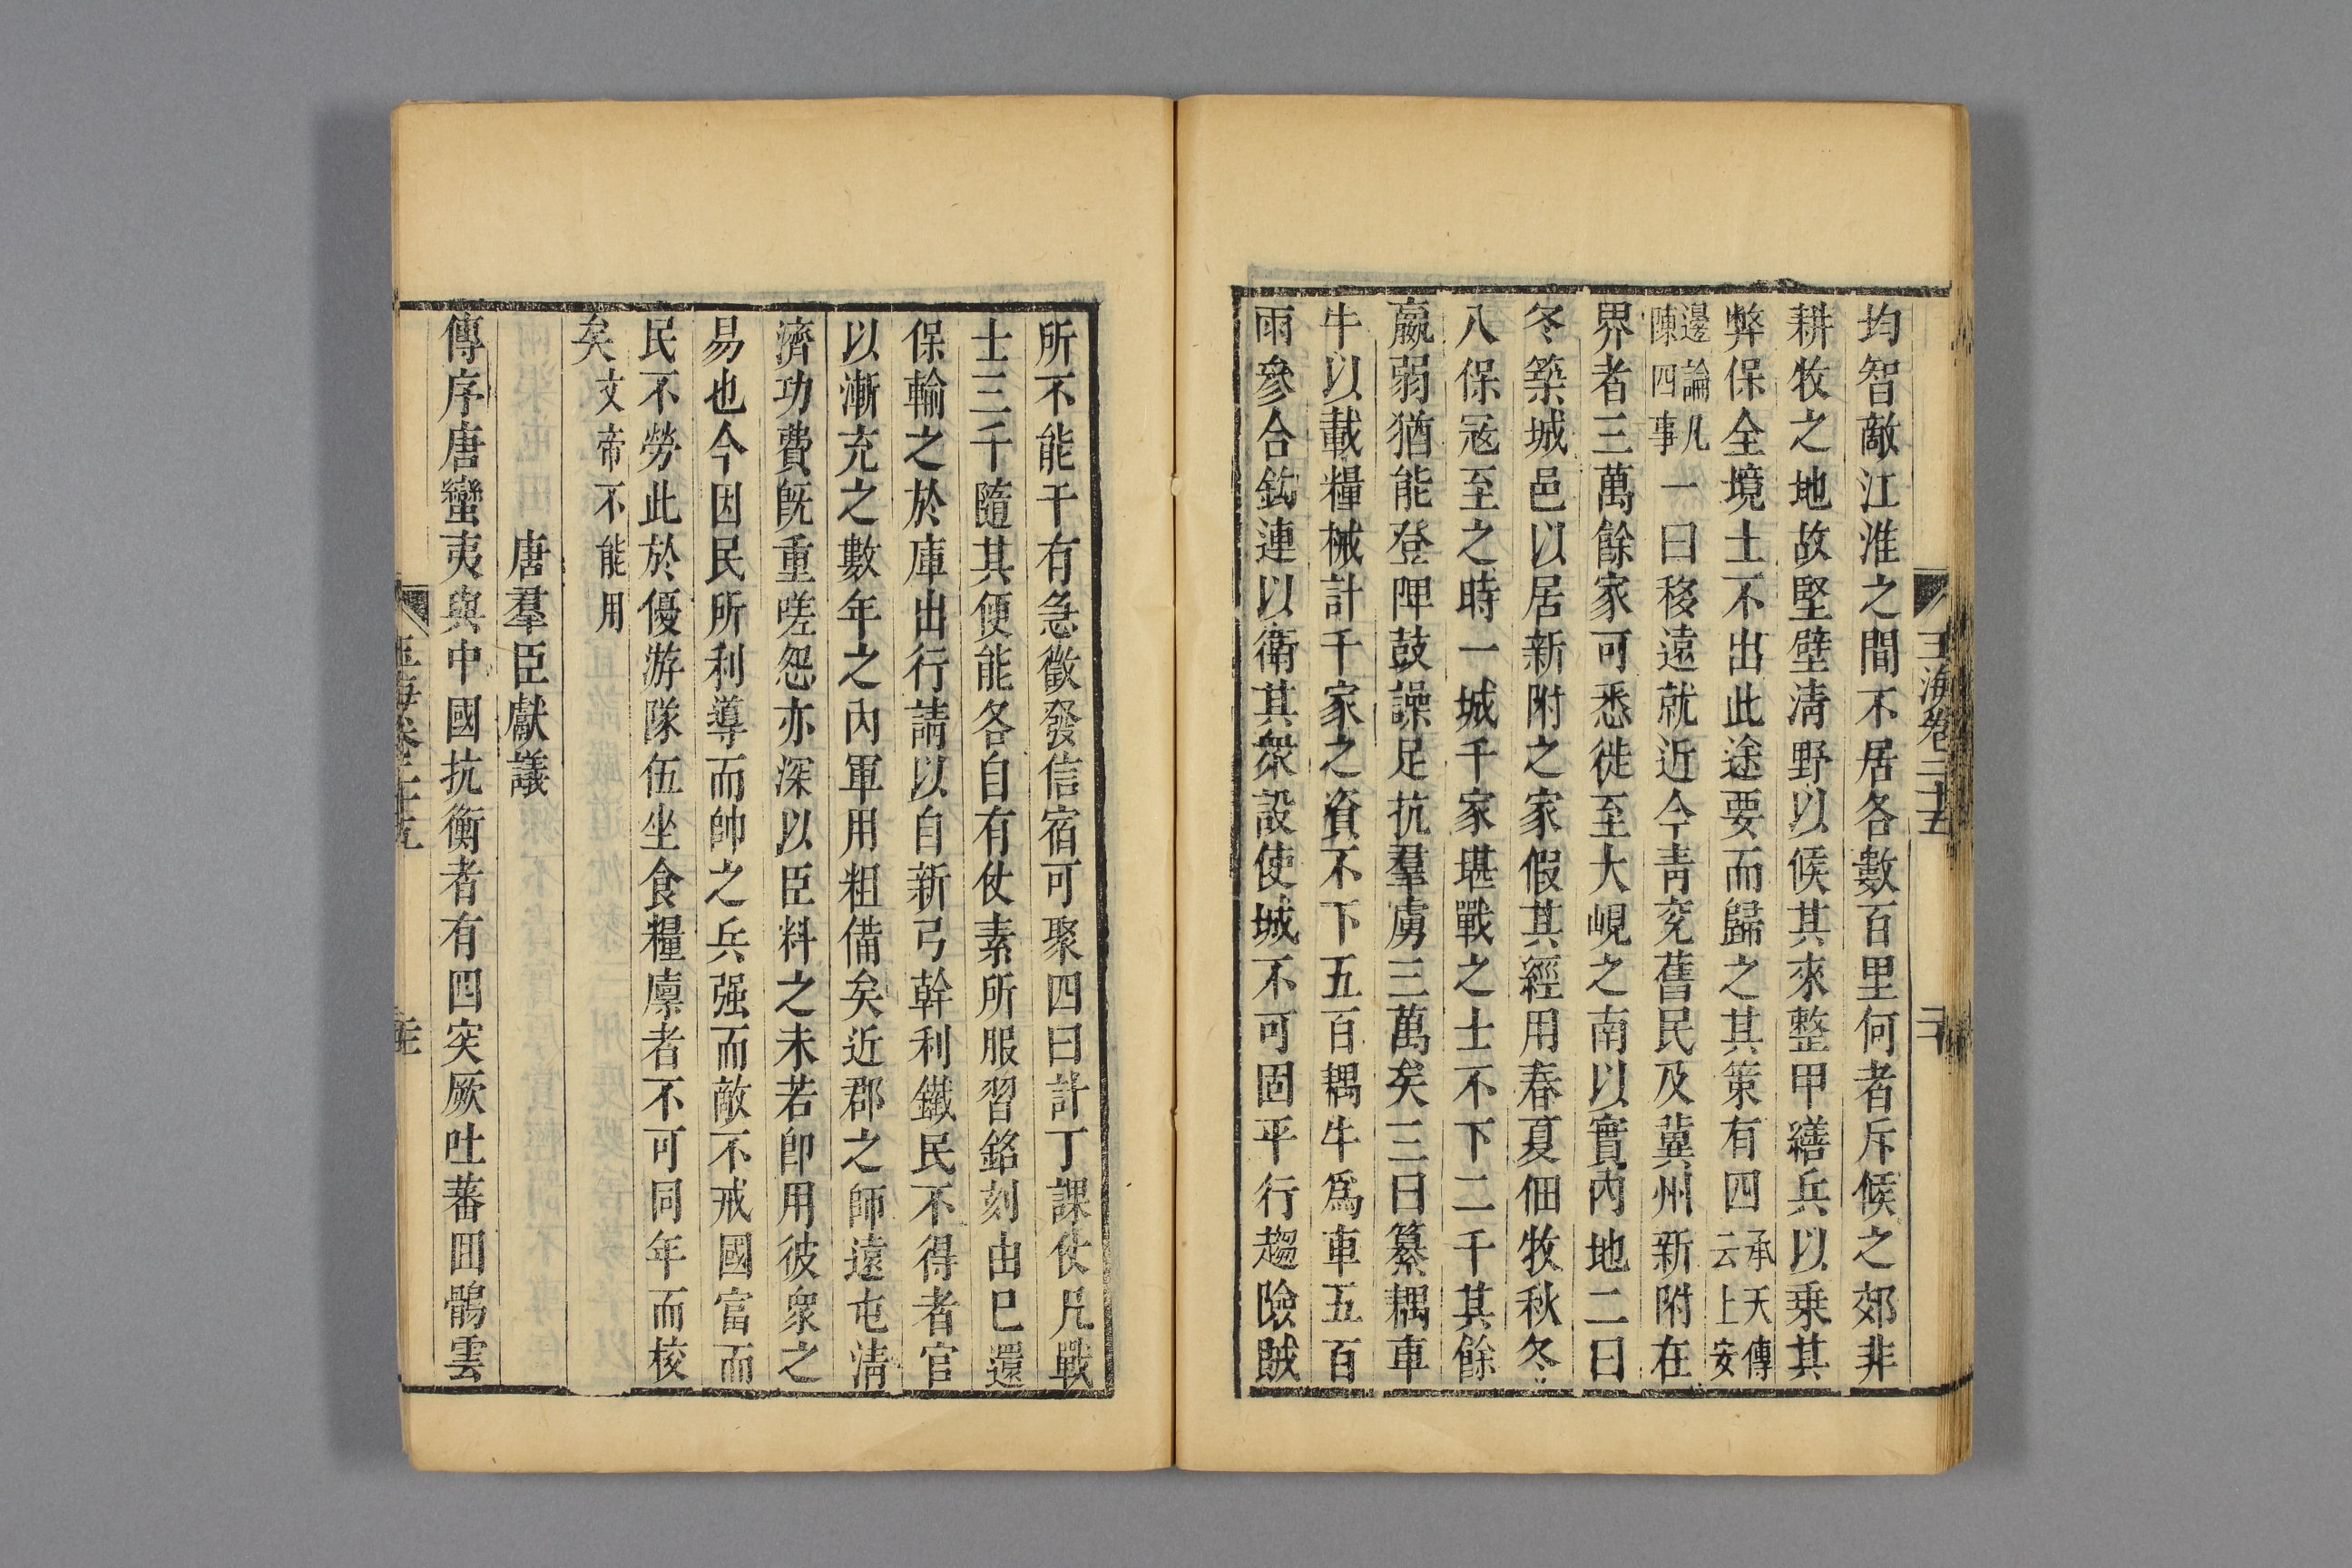 玉海卷二十五
均智敵江淮之間不居各數百里何者斥候之郊非
耕牧之地故堅壁清野以候其來整甲繕兵以乗其
弊保全境土不出此途要而歸之其策有四承天傳云上安
邊論凡陳四事一曰移遠就近今青兖舊民及冀州新附在
界者三萬餘家可悉徙至大峴之南以實内地二曰
冬築城邑以居新附之家假其經用春夏佃牧秋冬
入保冦至之時一城千家堪戰之士不下二千其餘
羸弱猶能登陴鼓譟足抗羣虜三萬矣三曰纂耦車
牛以載糧械計千家之資不下五百耦牛爲車五百
兩參合鈎連以衛其衆設使城不可固平行趨險賊
所不能干有急徵發信宿可聚四曰計丁課仗凡戰
士三千隨其便能各自有仗素所服習銘刻由已還
保輸之於庫出行請以自新弓幹利鐵民不得者官
以漸充之數年之内軍用粗備矣近郡之師遠屯清
濟功費旣重嗟怨亦深以臣料之未若卽用彼衆之
易也今因民所利導而帥之兵强而敵不戒國富而
民不勞此於優游隊伍坐食糧廪者不可同年而校
矣文帝不能用
唐羣臣獻議
傳序唐蠻夷與中國抗衡者有四突厥吐蕃回鶻雲